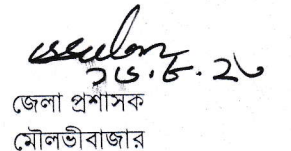 ২৮.৮.২৩
জেলা প্রশাসক
মৌলভীবাজার